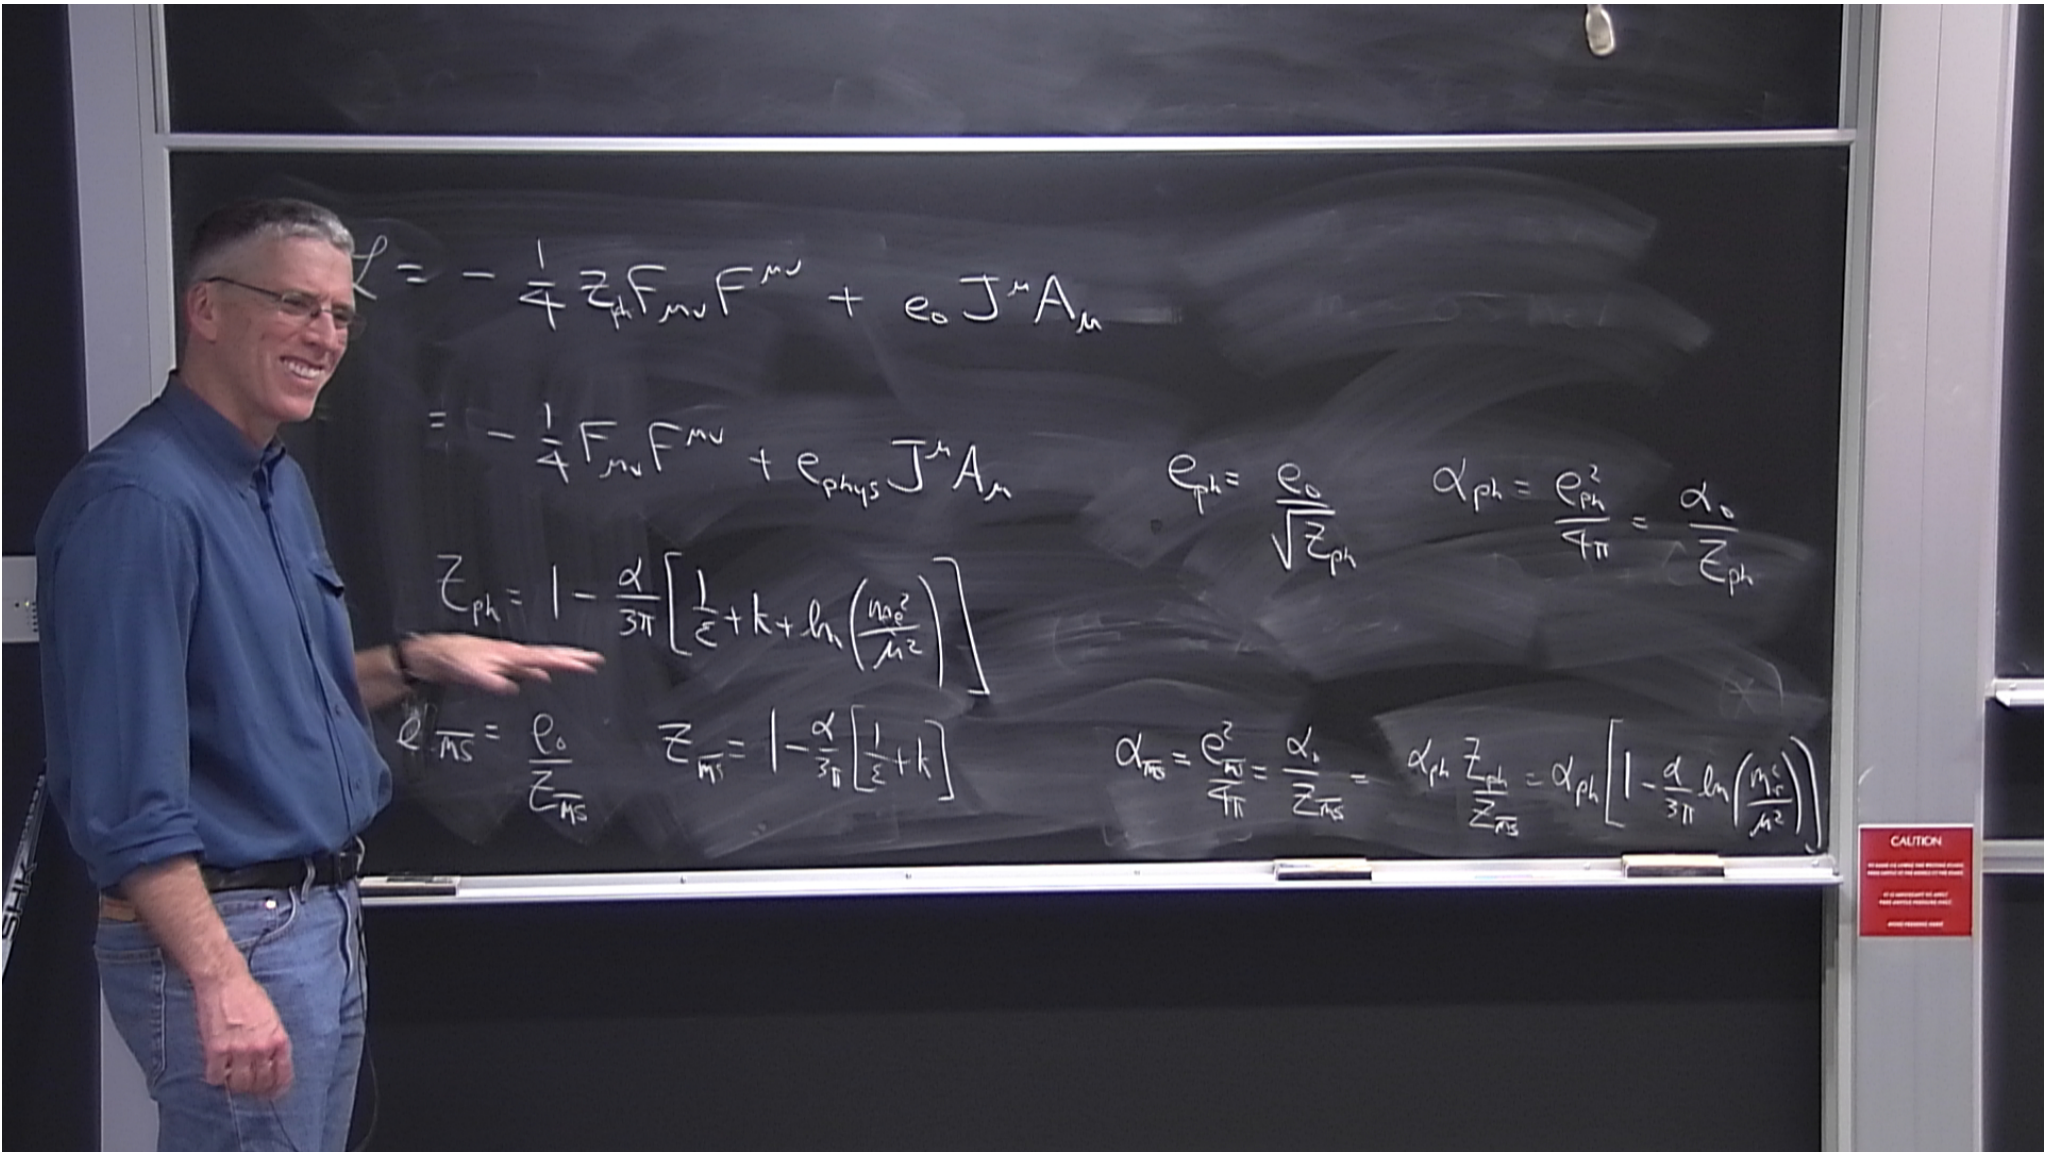 ℒ = - 1/4 Z_ph F_μν F^μν + e₀ J^μ A_μ
= - 1/4 F_μν F^μν + e_phys J^μ A_μ
e_ph = e₀/√Z_ph
α_ph = e²_ph/4π = α₀/Z_ph
Z_ph = 1 - α/3π [1/ε + k + ln(m_e²/μ²)]
e_M̅S̅ = e₀/Z_M̅S̅
Z_M̅S̅ = 1 - α/3π [1/ε + k]
α_M̅S̅ = e²_M̅S̅/4π = α₀/Z_M̅S̅ = α_ph Z_ph/Z_M̅S̅ = α_ph [1 - α/3π ln(m_e²/μ²)]
CAUTION